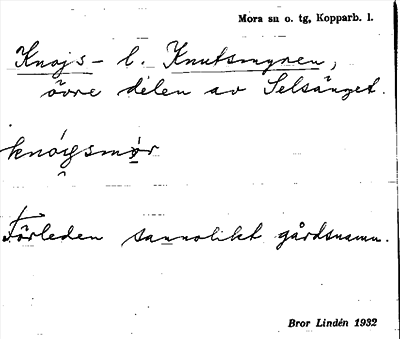 Mora sn o. tg, Kopparb. l.
Knojs- l. Knutsmyren,
övre delen av Selsänget.
knóysmỳr
Förleden sannolikt gårdsnamn.
Bror Lindén 1932